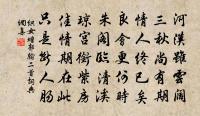 河漢雖雲闊
三秋尚有期
情人終已矣
良會更何時
朱閣臨清溪
瓊宮銜紫房
佳情期在此
只是斷人腸
織女贈郭翰二首詞典
網集